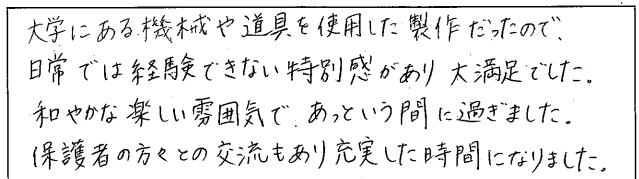 大学にある機械や道具を使用した製作だったので、
日常では経験できない特別感があり大満足でした。
和やかな楽しい雰囲気で、あっという間に過ぎました。
保護者の方々との交流もあり充実した時間になりました。